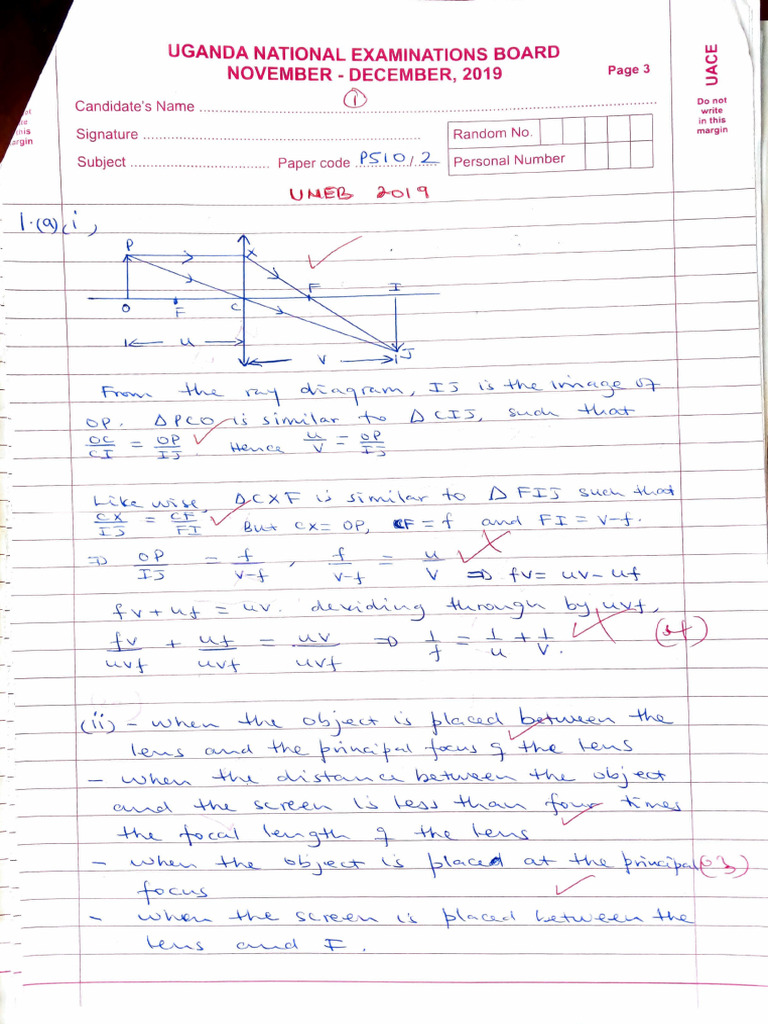 UGANDA NATIONAL EXAMINATIONS BOARD
NOVEMBER - DECEMBER, 2019
Page 3
UACE
Do not
write
in this
margin
Candidate's Name
1
Signature
Random No.
Subject
Paper code P510/2
Personal Number
UNEB 2019
1.(a)(i)
P
X
F
I
O
F
C
u
v
J
From the ray diagram, IJ is the image of
OP. ΔPCO is similar to ΔCIJ, such that
OC/CI = OP/IJ. Hence u/v = OP/IJ
Like wise, ΔCXF is similar to ΔFIJ such that
CX/IJ = CF/FI But CX = OP, CF = f and FI = v-f.
⇒ OP/IJ = f/v-f , f/v-f = u/v ⇒ fv = uv - uf
fv + uf = uv. deviding through by uvf,
fv/uvf + uf/uvf = uv/uvf ⇒ 1/f = 1/u + 1/v.
(ii) - when the object is placed between the
lens and the principal focus of the lens
- when the distance between the object
and the screen is less than four times
the focal length of the lens
- when the object is placed at the principal (03)
focus
- when the screen is placed between the
lens and F.